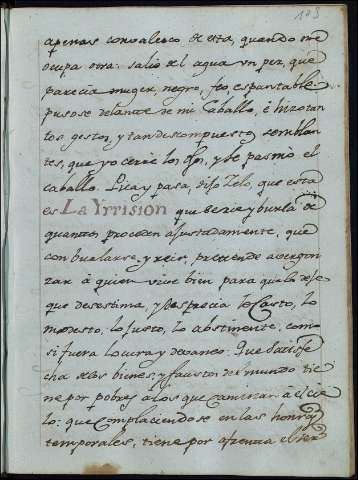 103
apenas convalesco de esta, quando me
ocupa otra: salio del agua un pez, que
parecia muger, negro, feo, espantable:
pusose delante de mi Caballo, è hizo tan
tos gestos, y tan descompuestos semblan
tes, que yo cerrè los ojos, y se pasmò el
caballo. Pica y pasa, dijo Zelo, que esta
es La Yrrision que se rie y burla de
quantos proceden ajustadamente, que
con burlarse, y reir, pretende avergon
zar à quien vive bien para que lo deje
que desestima, y desprecia lo Casto, lo
modesto, lo justo, lo abstinente, como
si fuera locura y devaneo: Que satisfe
cha de los bienes, y faustos del mundo tie
ne por pobres à los que caminan al cie
lo: que complaciendose en las honrras
temporales, tiene por afrenta el ser